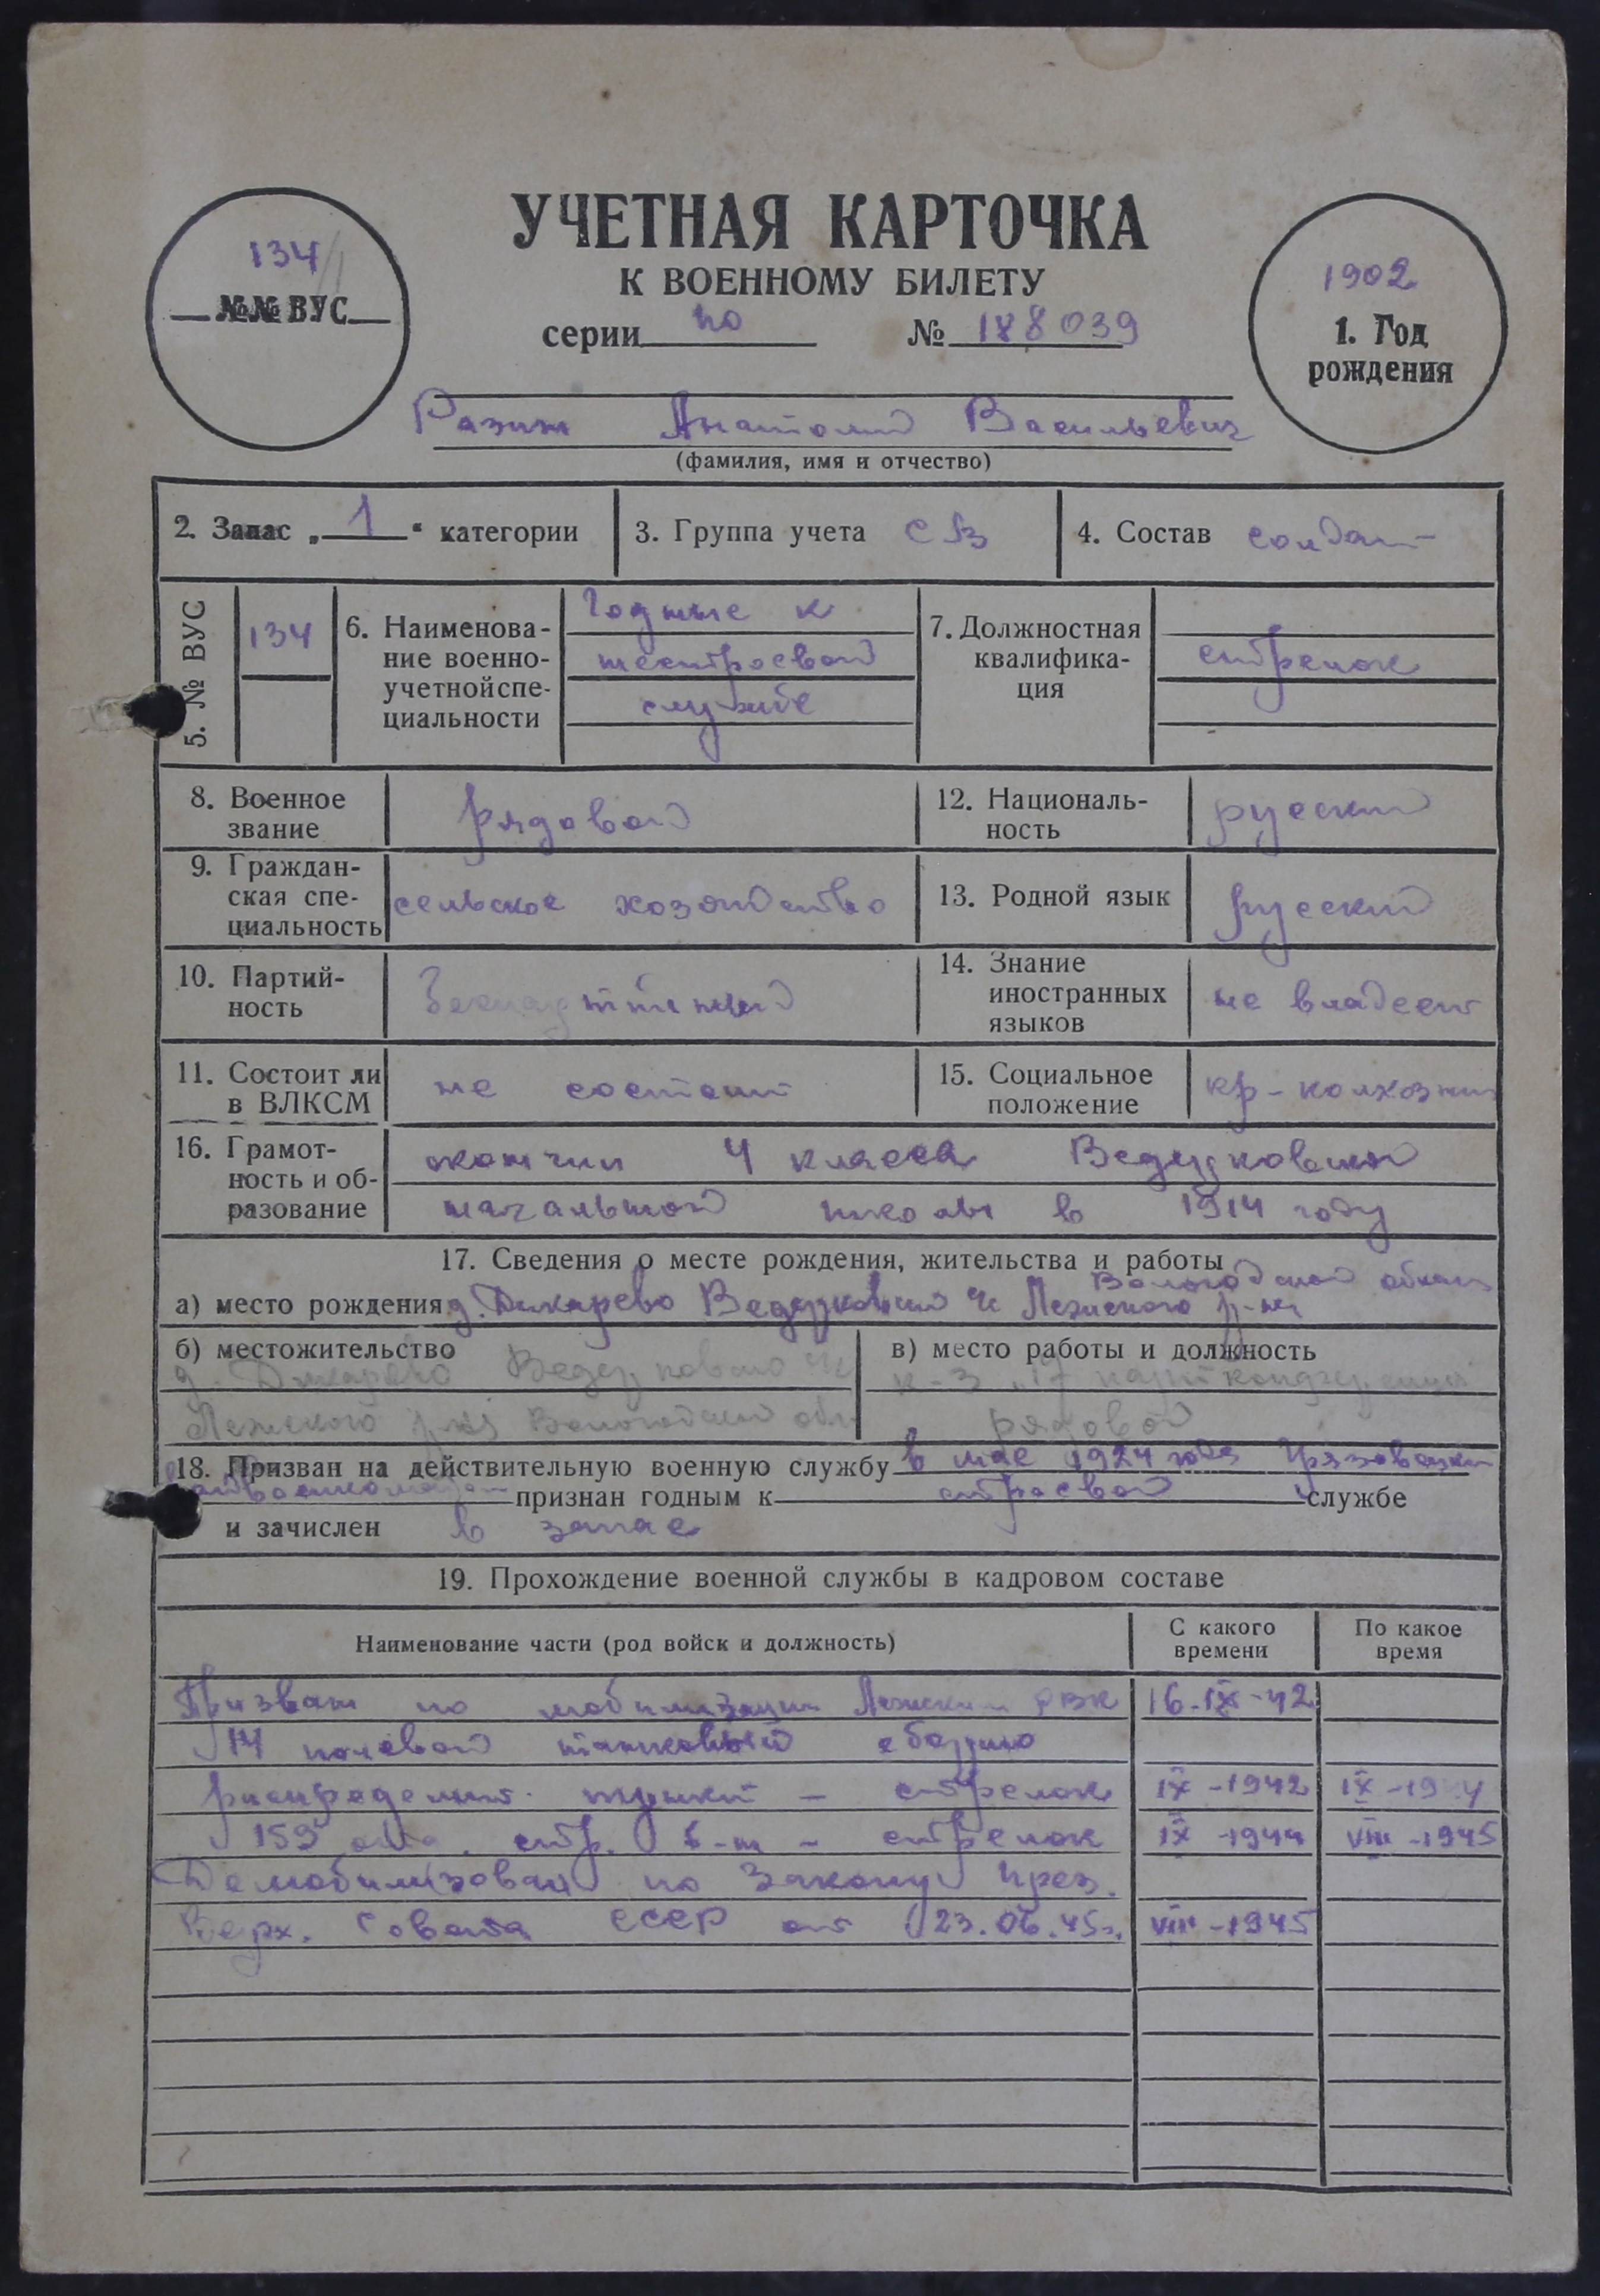 УЧЕТНАЯ КАРТОЧКА
К ВОЕННОМУ БИЛЕТУ
134
№№ ВУС
серии по № 188039
1902
1. Год рождения
Разин Анатолий Васильевич
(фамилия, имя и отчество)
2. Запас „1“ категории
3. Группа учета СВ
4. Состав солдат
5. № ВУС 134
6. Наименова-
ние военно-
учетной спе-
циальности
Годные к
нестроевой
службе
7. Должностная
квалифика-
ция
стрелок
8. Военное
звание
рядовой
12. Националь-
ность
русский
9. Граждан-
ская спе-
циальность
сельское хозяйство
13. Родной язык русский
10. Партий-
ность
Беспартийный
14. Знание
иностранных
языков
не владеет
11. Состоит ли
в ВЛКСМ
не состоит
15. Социальное
положение
кр-колхозник
16. Грамот-
ность и об-
разование
окончил 4 класса Ведерковской
начальной школы в 1914 году
17. Сведения о месте рождения, жительства и работы
Вологодской област
а) место рождения д. Дикарево Ведерковский с/с Лежского р-на
б) местожительство
д. Дикарево Ведерковского с/с
Лежского р-на Вологодской обл.
в) место работы и должность
к-з „17 партконференции
рядовой
18. Призван на действительную военную службу в мае 1924 года Грязовецким
райвоенкоматом признан годным к строевой службе
и зачислен в запас
19. Прохождение военной службы в кадровом составе
Наименование части (род войск и должность)
С какого
времени
По какое
время
Призван по мобилизации Лежским РВК 16-IX-42
14 полевой танковый сборно
распределит. пункт – стрелок IX-1942 IX-1944
159 отд. стр. б-н – стрелок IX-1944 VIII-1945
Демобилизован по Закону През.
Верх. Совета СССР от 23.06.45г. VIII-1945